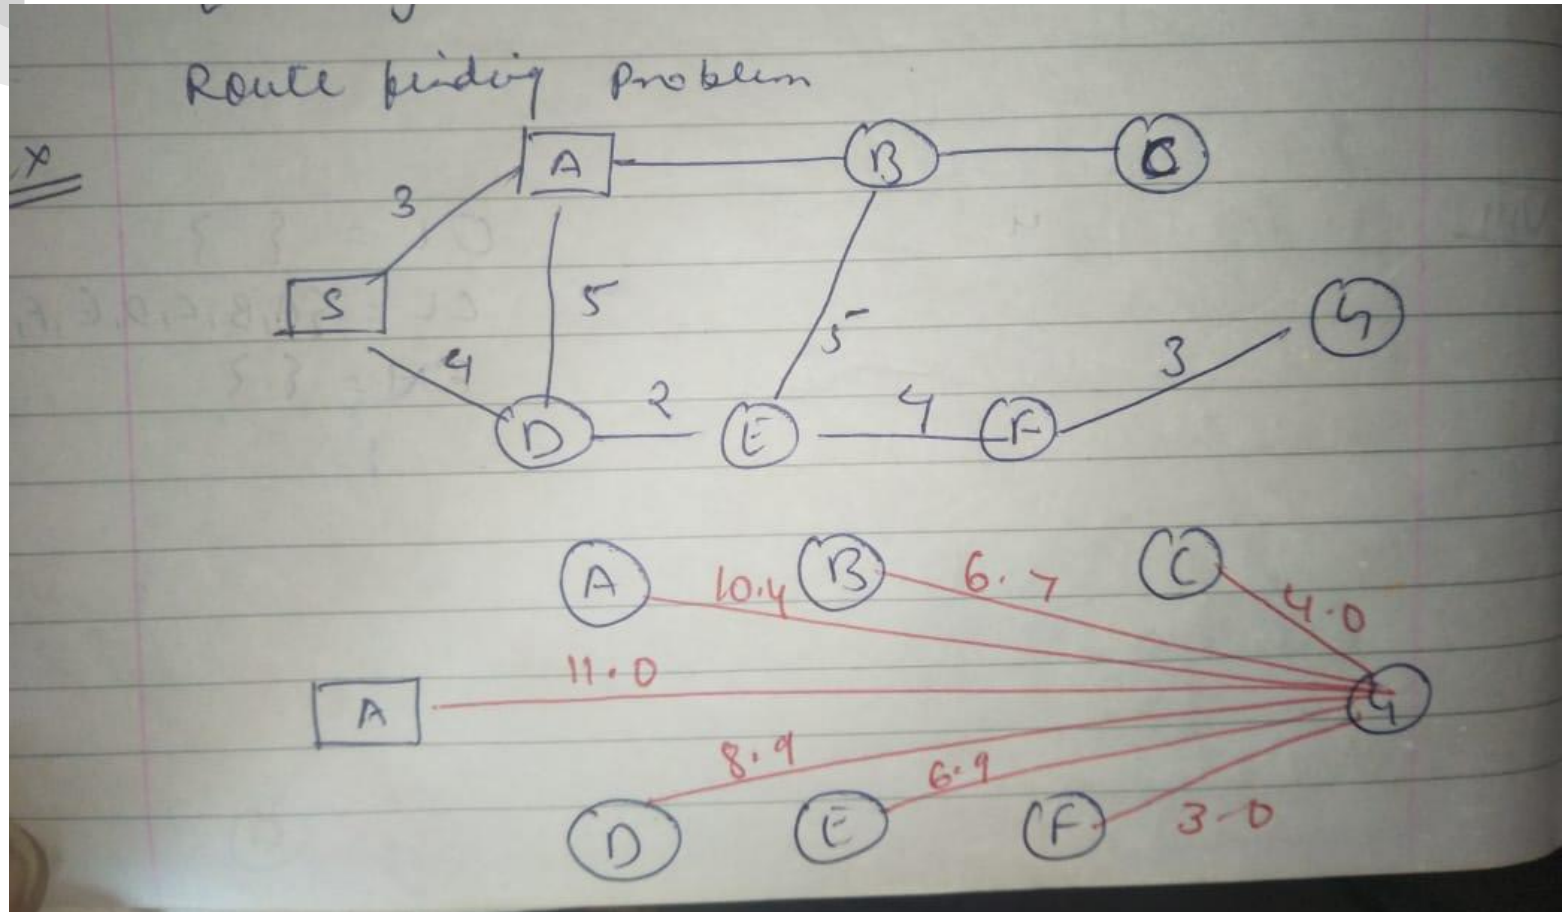 Route finding Problem
Ex
A B C
3
S 5 5 G
4 2 4 3
D E F
A 10.4 B 6.7 C 4.0
11.0
A G
8.9 6.9
D E F 3.0